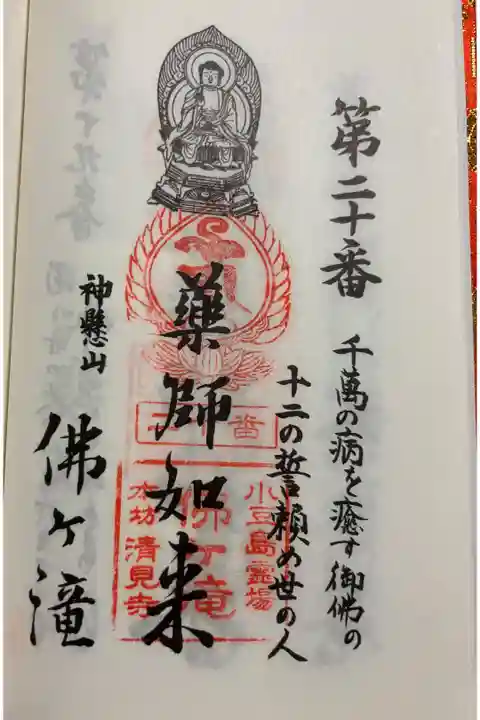 第二十番
千萬の病を癒す御佛の
十二の誓頼め世の人
藥師如来
神懸山
佛ヶ滝
小豆島霊場
佛ヶ滝
本坊 清見寺